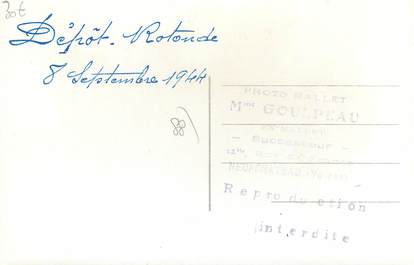 30€
Dépôt-Rotonde
8 Septembre 1944
PHOTO MALLET
Mme GOULPEAU
Successeur
NEUFCHATEAU (Vosges)
Reproduction
interdite